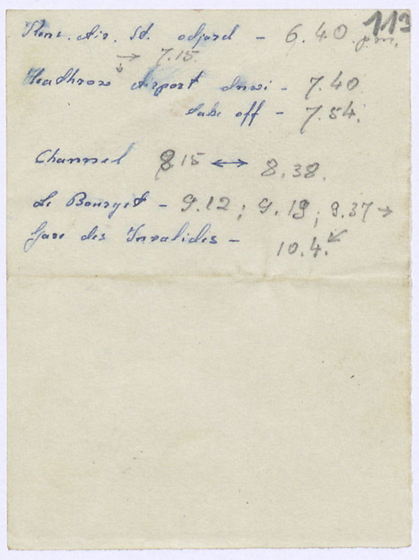 113
Kens. Air. St. odjezd - 6.40 pm.
→ 7.15
Heathrow Airport - 7.40
take off - 7.54.
Channel 8.15 ↔ 8.38.
Le Bourget - 9.12; 9.19; 9.37 →
Gare des Invalides - 10.4.